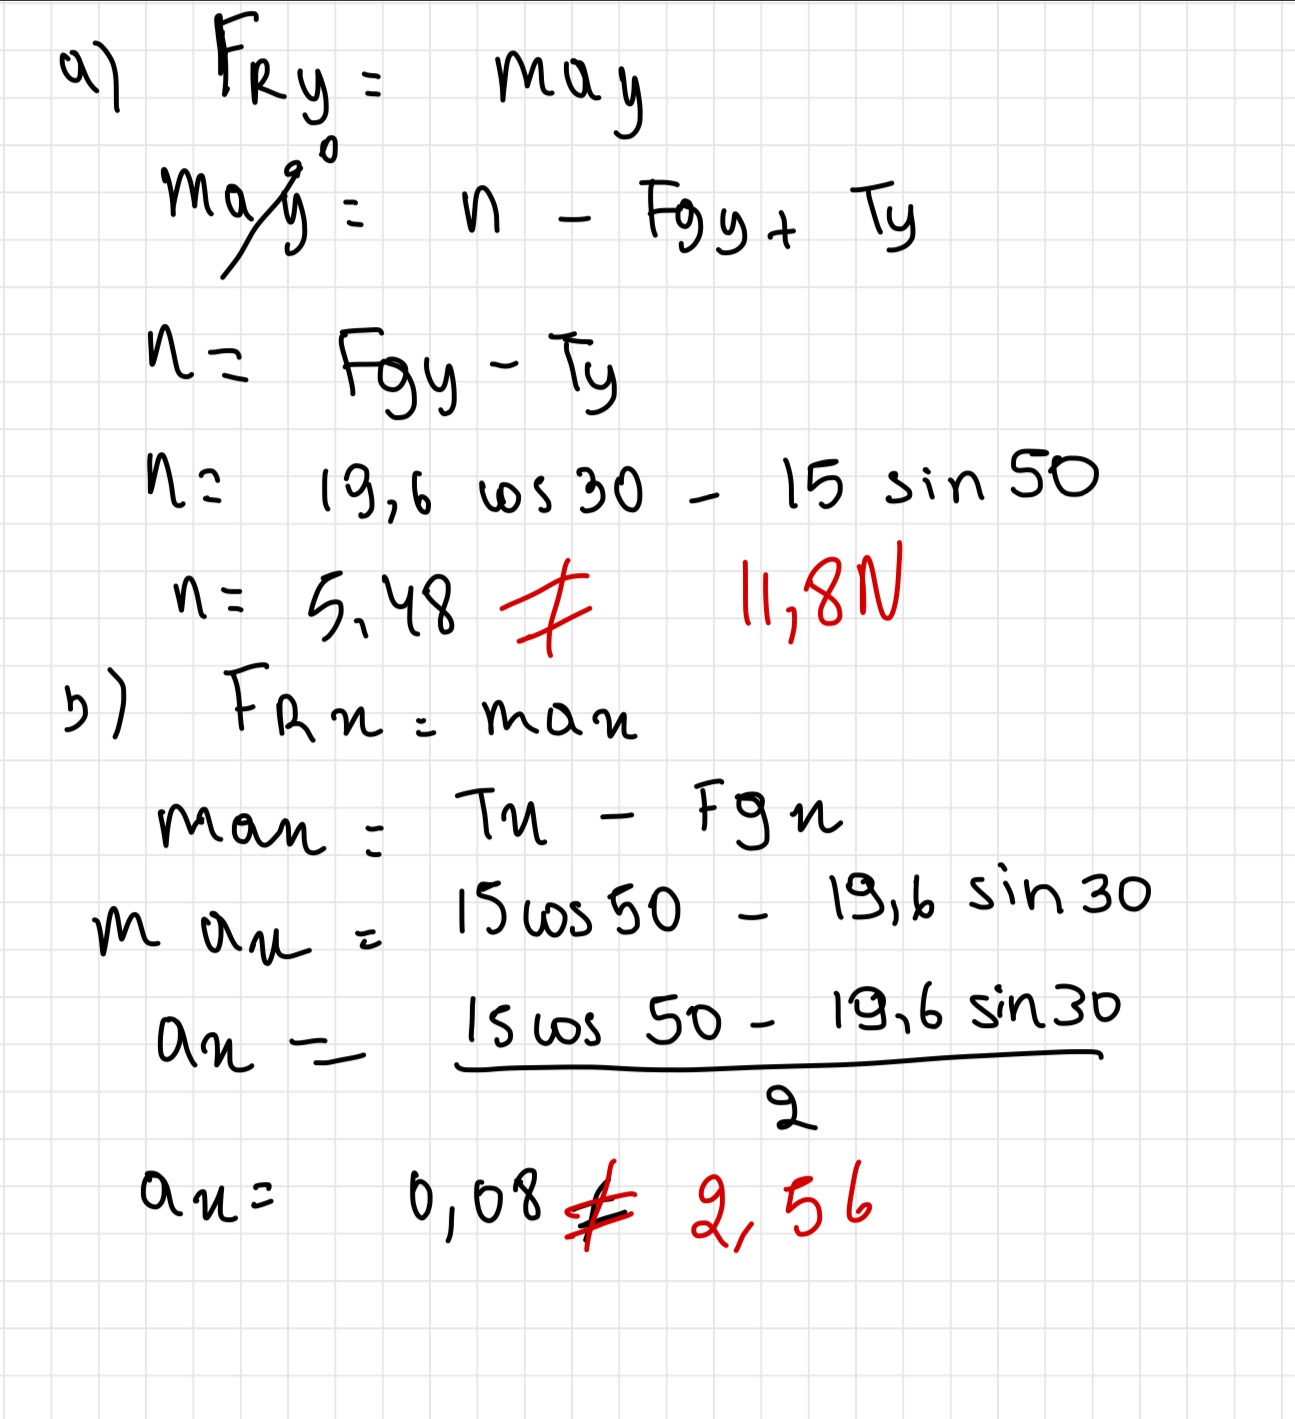 a) FRy = may
may⁰ = n - Fgy + Ty
n = Fgy - Ty
n = 19,6 cos 30 - 15 sin 50
n = 5,48 ≠ 11,8N
b) FRx = max
max = Tx - Fgx
m ax = 15 cos 50 - 19,6 sin 30
ax = 15 cos 50 - 19,6 sin 30
2
ax = 0,08 ≠ 2,56